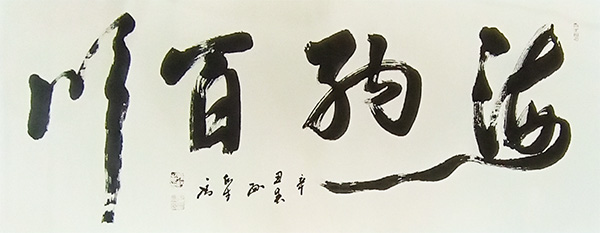 海纳百川
辛丑